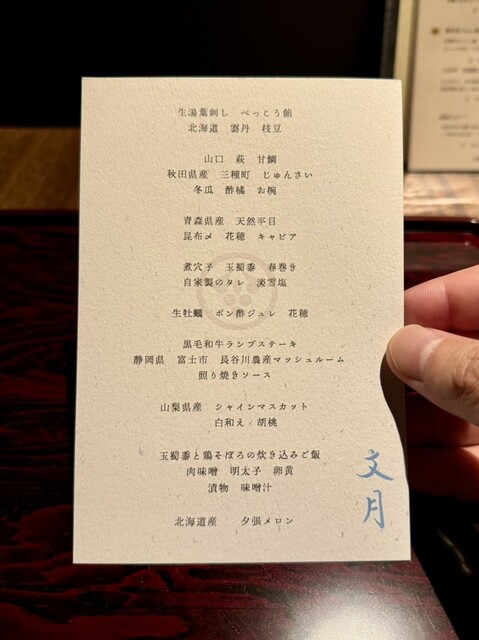 生湯葉刺し　べっこう餡
北海道　雲丹　枝豆
山口　萩　甘鯛
秋田県産　三種町　じゅんさい
冬瓜　酢橘　お椀
青森県産　天然平目
昆布〆　花穂　キャビア
煮穴子　玉蜀黍　春巻き
自家製のタレ　淡雪塩
生牡蠣　ポン酢ジュレ　花穂
黒毛和牛ランプステーキ
静岡県　富士市　長谷川農産マッシュルーム
照り焼きソース
山梨県産　シャインマスカット
白和え　胡桃
玉蜀黍と鶏そぼろの炊き込みご飯
肉味噌　明太子　卵黄
漬物　味噌汁
北海道産　夕張メロン
文月